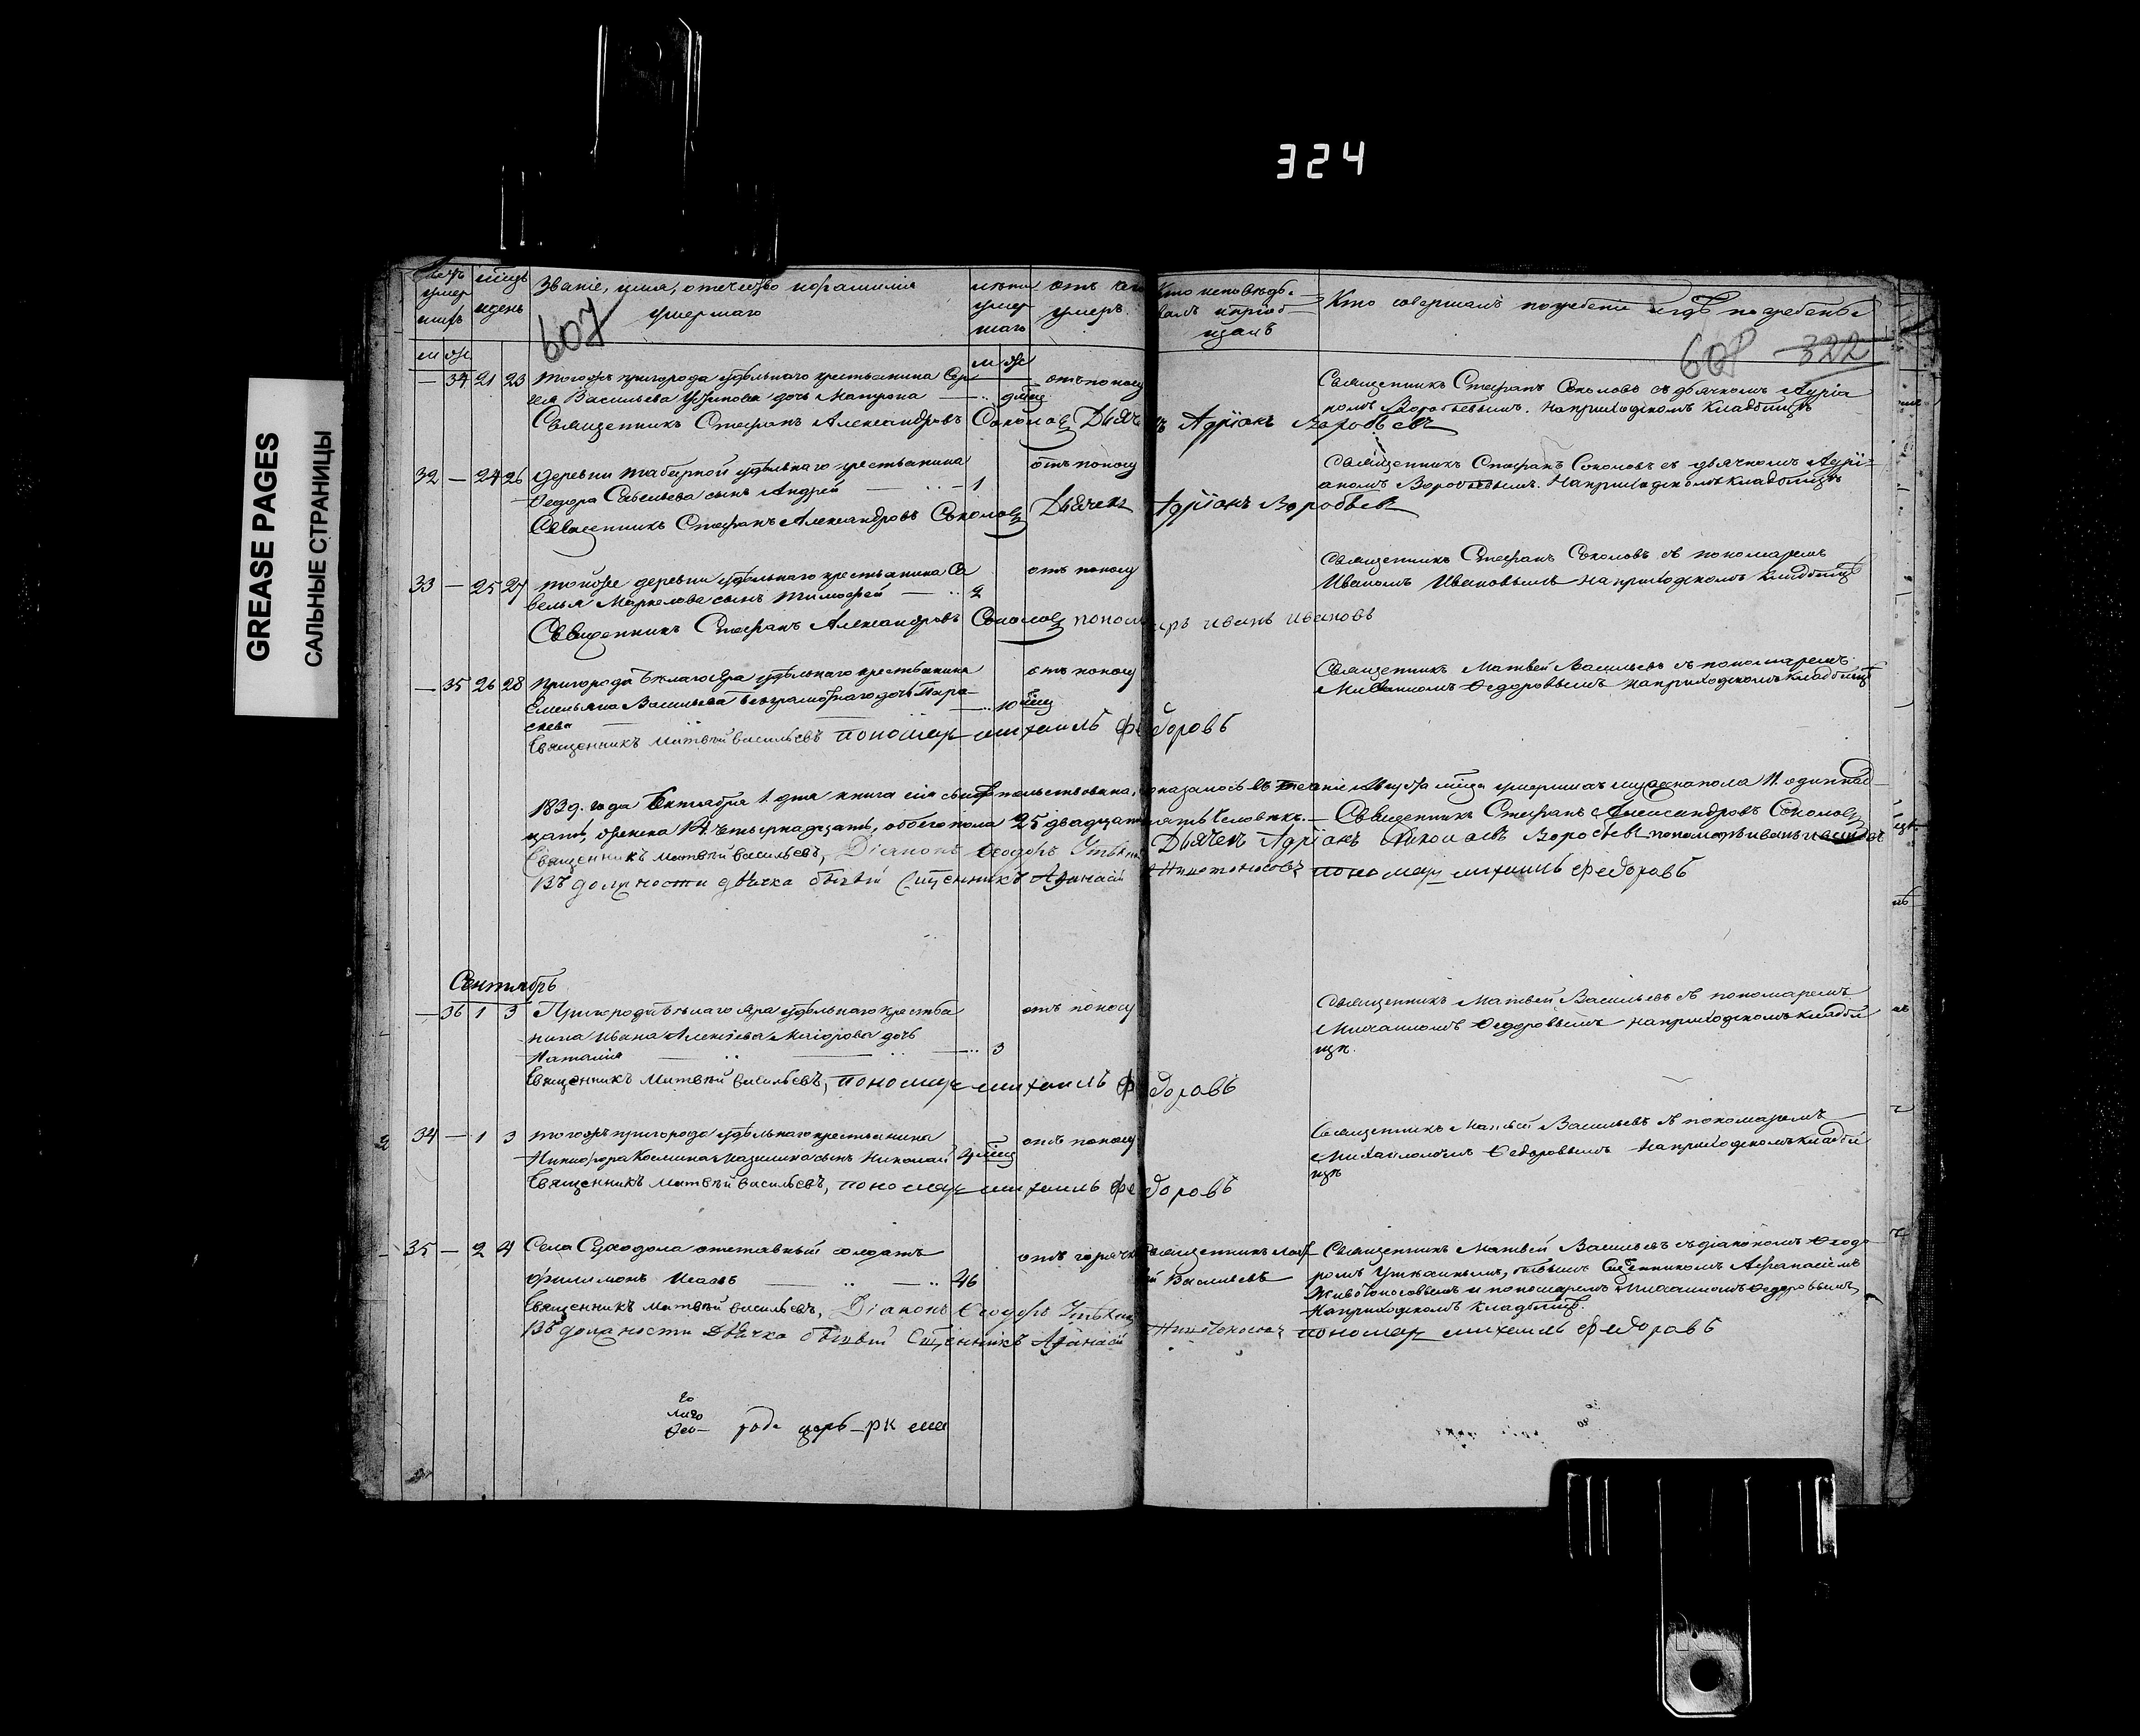 324
GREASE PAGES
САЛЬНЫЕ СТРАНИЦЫ
умер
шихъ
мѣсяцъ
и день
Званіе, имя, отечество и фамилія
умершаго
607
лѣта
умер
шаго
отъ чего
умеръ
Кто исповѣды-
валъ и пріоб-
щалъ
Кто совершалъ погребеніе и гдѣ погребены
608 322
м ж
м ж
— 34 21 23 тогожъ пригорода удѣльнаго крестьянина Сер отъ поносу Священникъ Стефанъ Соколовъ съ дьячкомъ Адріа
Васильева дочь Матрона номъ Воробьевымъ. На приходскомъ кладбищѣ
Священникъ Стефанъ Александровъ Соколовъ Дьячекъ Адріанъ Воробьевъ
32 — 24 26 деревни удѣльнаго крестьянина отъ поносу Священникъ Стефанъ Соколовъ съ дьячкомъ Адрі-
Ѳедора Савельева сынъ Андрей 1 аномъ Воробьевымъ. На приходскомъ кладбищѣ
Священникъ Стефанъ Александровъ Соколовъ Дьячекъ Адріанъ Воробьевъ
33 — 25 27 тойже деревни удѣльнаго крестьянина Са отъ поносу Священникъ Стефанъ Соколовъ съ пономаремъ
велья Маркелова сынъ Тимофей 2 Иваномъ Ивановымъ на приходскомъ кладбищѣ
Священникъ Стефанъ Александровъ Соколовъ пономарь Иванъ Ивановъ
— 35 26 28 Пригорода Бѣлаго Яра удѣльнаго крестьянина отъ поносу Священникъ Матвей Васильевъ съ пономаремъ
Емельяна Васильева дочь Пара- 10 мѣц Михаиломъ Ѳедоровымъ на приходскомъ кладбищѣ
скева
Священникъ Матвѣй Васильевъ пономарь михаилъ федоровъ
1839. года Октября 1. дня книга сія свидѣтельствована, оказалось въ теченіе Августа мѣсяца умершихъ мужеска пола 11. одиннад-
цать, женска 14. четырнадцать, обоего пола 25 двадцать пять человѣкъ.— Священникъ Стефанъ Александровъ Соколовъ
Священникъ Матвѣй Васильевъ, Діаконъ Ѳеодоръ Дьячекъ Адріанъ Николаевъ Воробьевъ пономарь иванъ ивановъ
Въ должности дьячка бывый Сщенникъ Аѳанасій Животоносовъ пономарь михаилъ федоровъ
Сентябрь
— 36 1 3 Пригорода Бѣлаго Яра удѣльнаго крестья отъ поносу Священникъ Матвей Васильевъ съ пономаремъ
нина Ивана Алексѣева Маіорова дочь Михаиломъ Ѳедоровымъ на приходскомъ кладби
Наталия 3 щѣ.
Священникъ Матвѣй Васильевъ, пономарь михаилъ федоровъ
34 — 1 3 тогожъ пригорода удѣльнаго крестьянина отъ поносу Священникъ Матвей Васильевъ съ пономаремъ
Никифора Козмина сынъ Николай 4 мѣц Михаиломъ Ѳедоровымъ на приходскомъ кладби
щѣ
Священникъ Матвѣй Васильевъ, пономарь михаилъ федоровъ
35 — 2 4 Села Суходола отставный солдатъ отъ горячки Священникъ Матв Священникъ Матвей Васильевъ съ діакономъ Ѳеодо
Филимонъ Исаевъ 46 ей Васильевъ ромъ бывымъ Сщенникомъ Афанасіемъ
Животоносовымъ и пономаремъ Михаиломъ Ѳедоровымъ
На приходскомъ кладбищѣ.
Священникъ Матвѣй Васильевъ, Діаконъ Ѳеодоръ
Въ должности дьячка бывый Сщенникъ Аѳанасій Животоносовъ пономарь михаилъ федоровъ